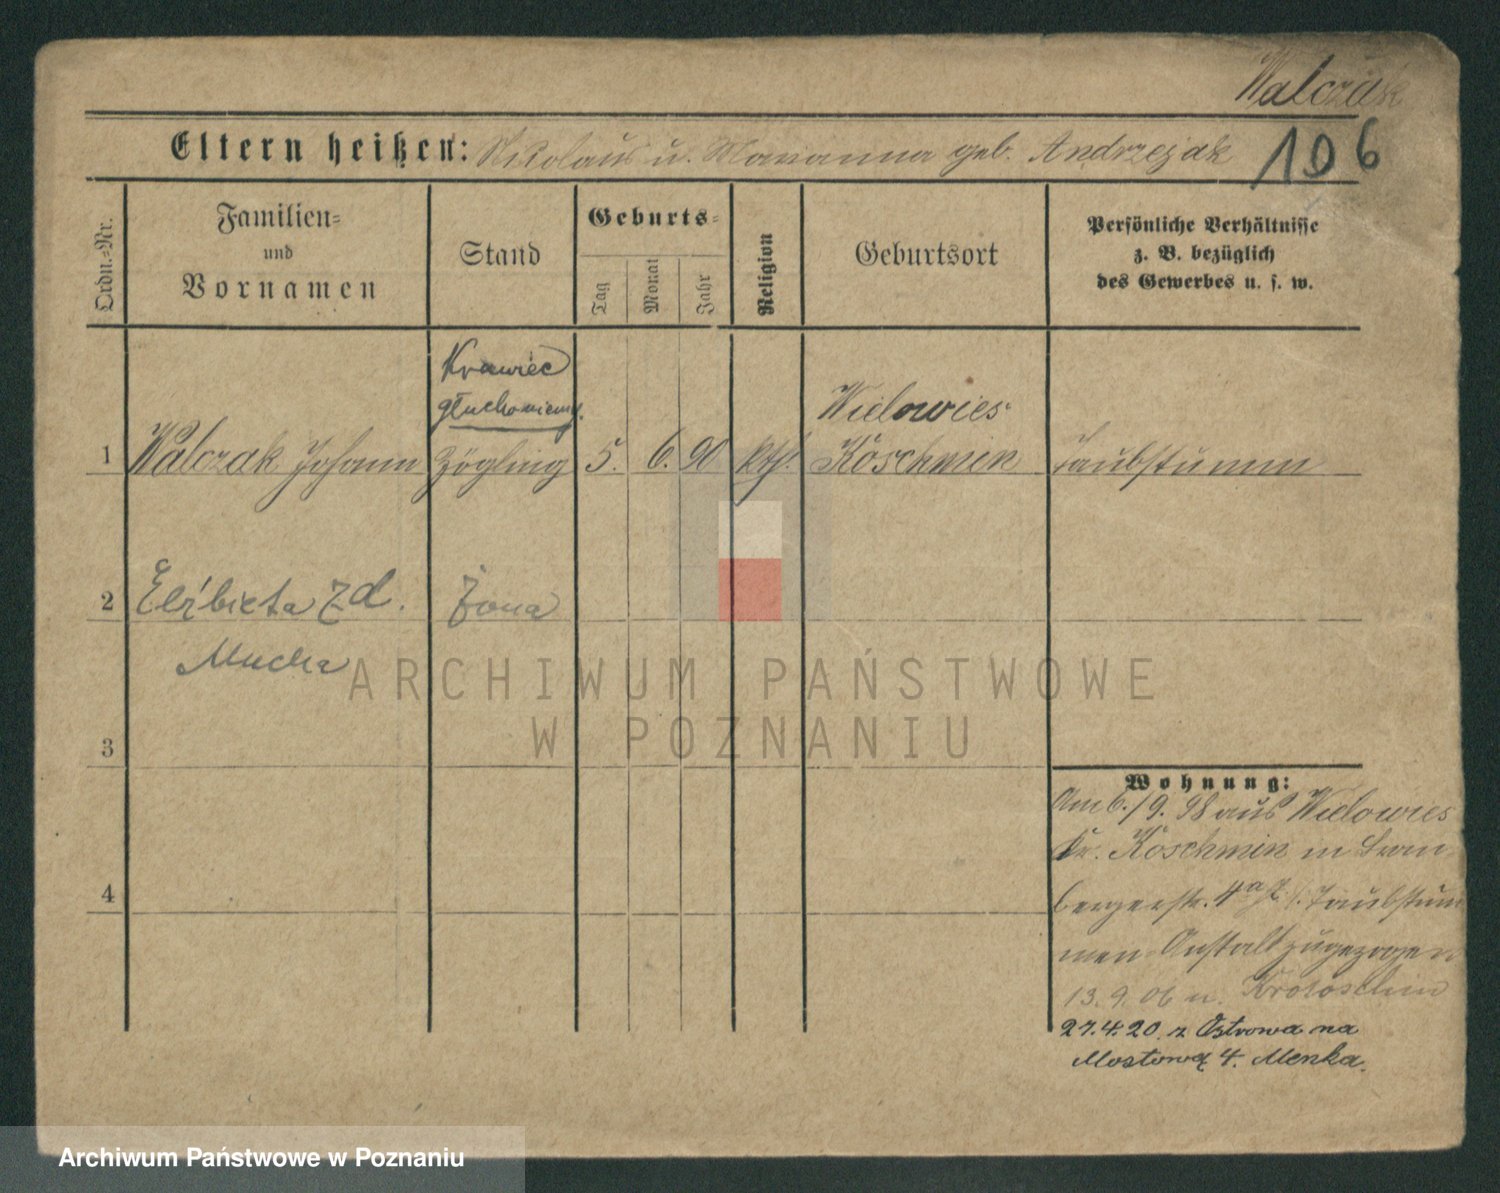 Walczak
Eltern heißen: Nikolaus u. Marianna geb. Andrzejak
106
Ordn.=Nr.
Familien=
und
Vornamen
Stand
Geburts=
Tag
Monat
Jahr
Religion
Geburtsort
Persönliche Verhältnisse
z. B. bezüglich
des Gewerbes u. s. w.
Krawiec
głuchoniemy.
Wielowies
1 Walczak Johann Zögling 5. 6. 90 kth. Koschmin taubstumm
2 Elżbieta zd. Żona
Mucha
3
4
Wohnung:
Am 6./9. 98 aus Wielowies
Kr. Koschmin in
bergerstr. 4a Taubstum
men Anstalt zugezogen
13.9.06 n. Krotoschin
27.4.20. z Ostrowa na
Mostową 4. Menka.
ARCHIWUM PAŃSTWOWE
W POZNANIU
Archiwum Państwowe w Poznaniu